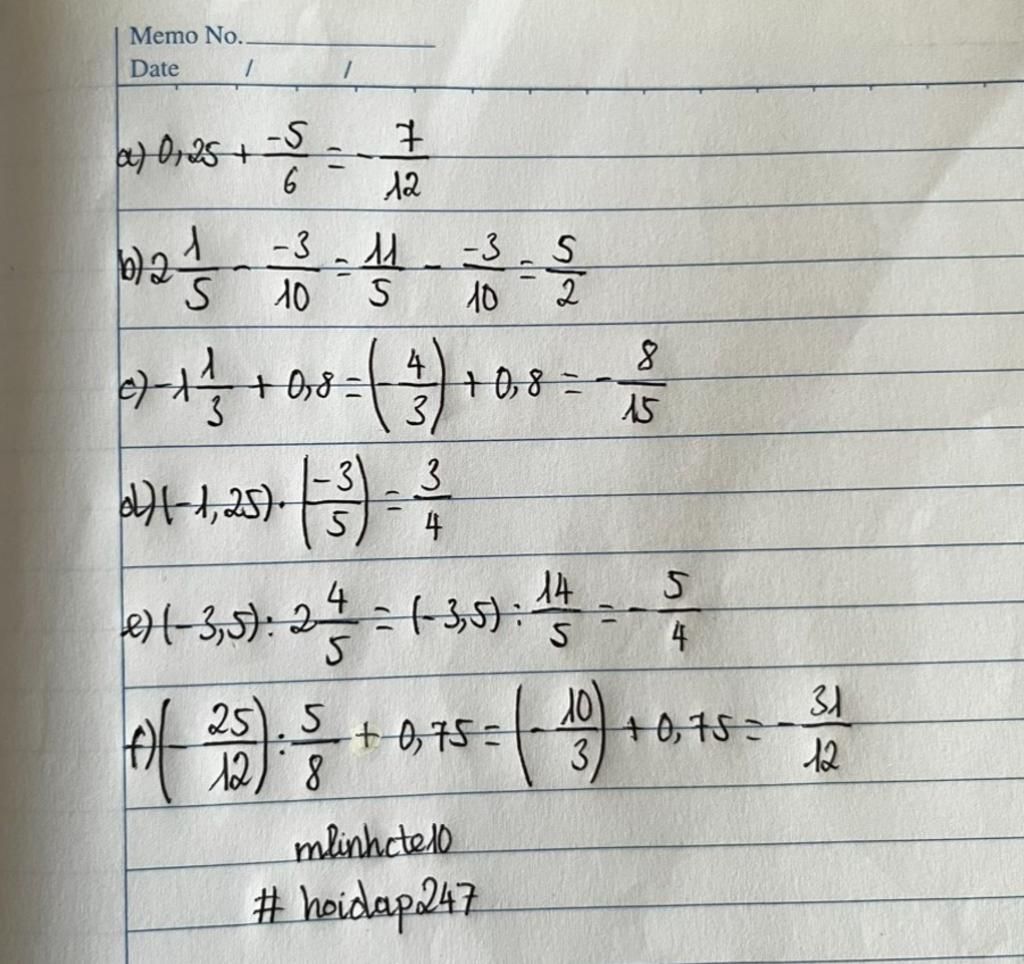 Memo No.
Date / /
a) 0,25 + -5/6 = - 7/12
b) 2 1/5 - -3/10 = 11/5 - -3/10 = 5/2
c) -1 1/3 + 0,8 = (- 4/3) + 0,8 = - 8/15
d) (-1,25) . (-3/5) = 3/4
e) (-3,5) : 2 4/5 = (-3,5) : 14/5 = - 5/4
f) (- 25/12) : 5/8 + 0,75 = (- 10/3) + 0,75 = - 31/12
mlinhcte10
# hoidap247